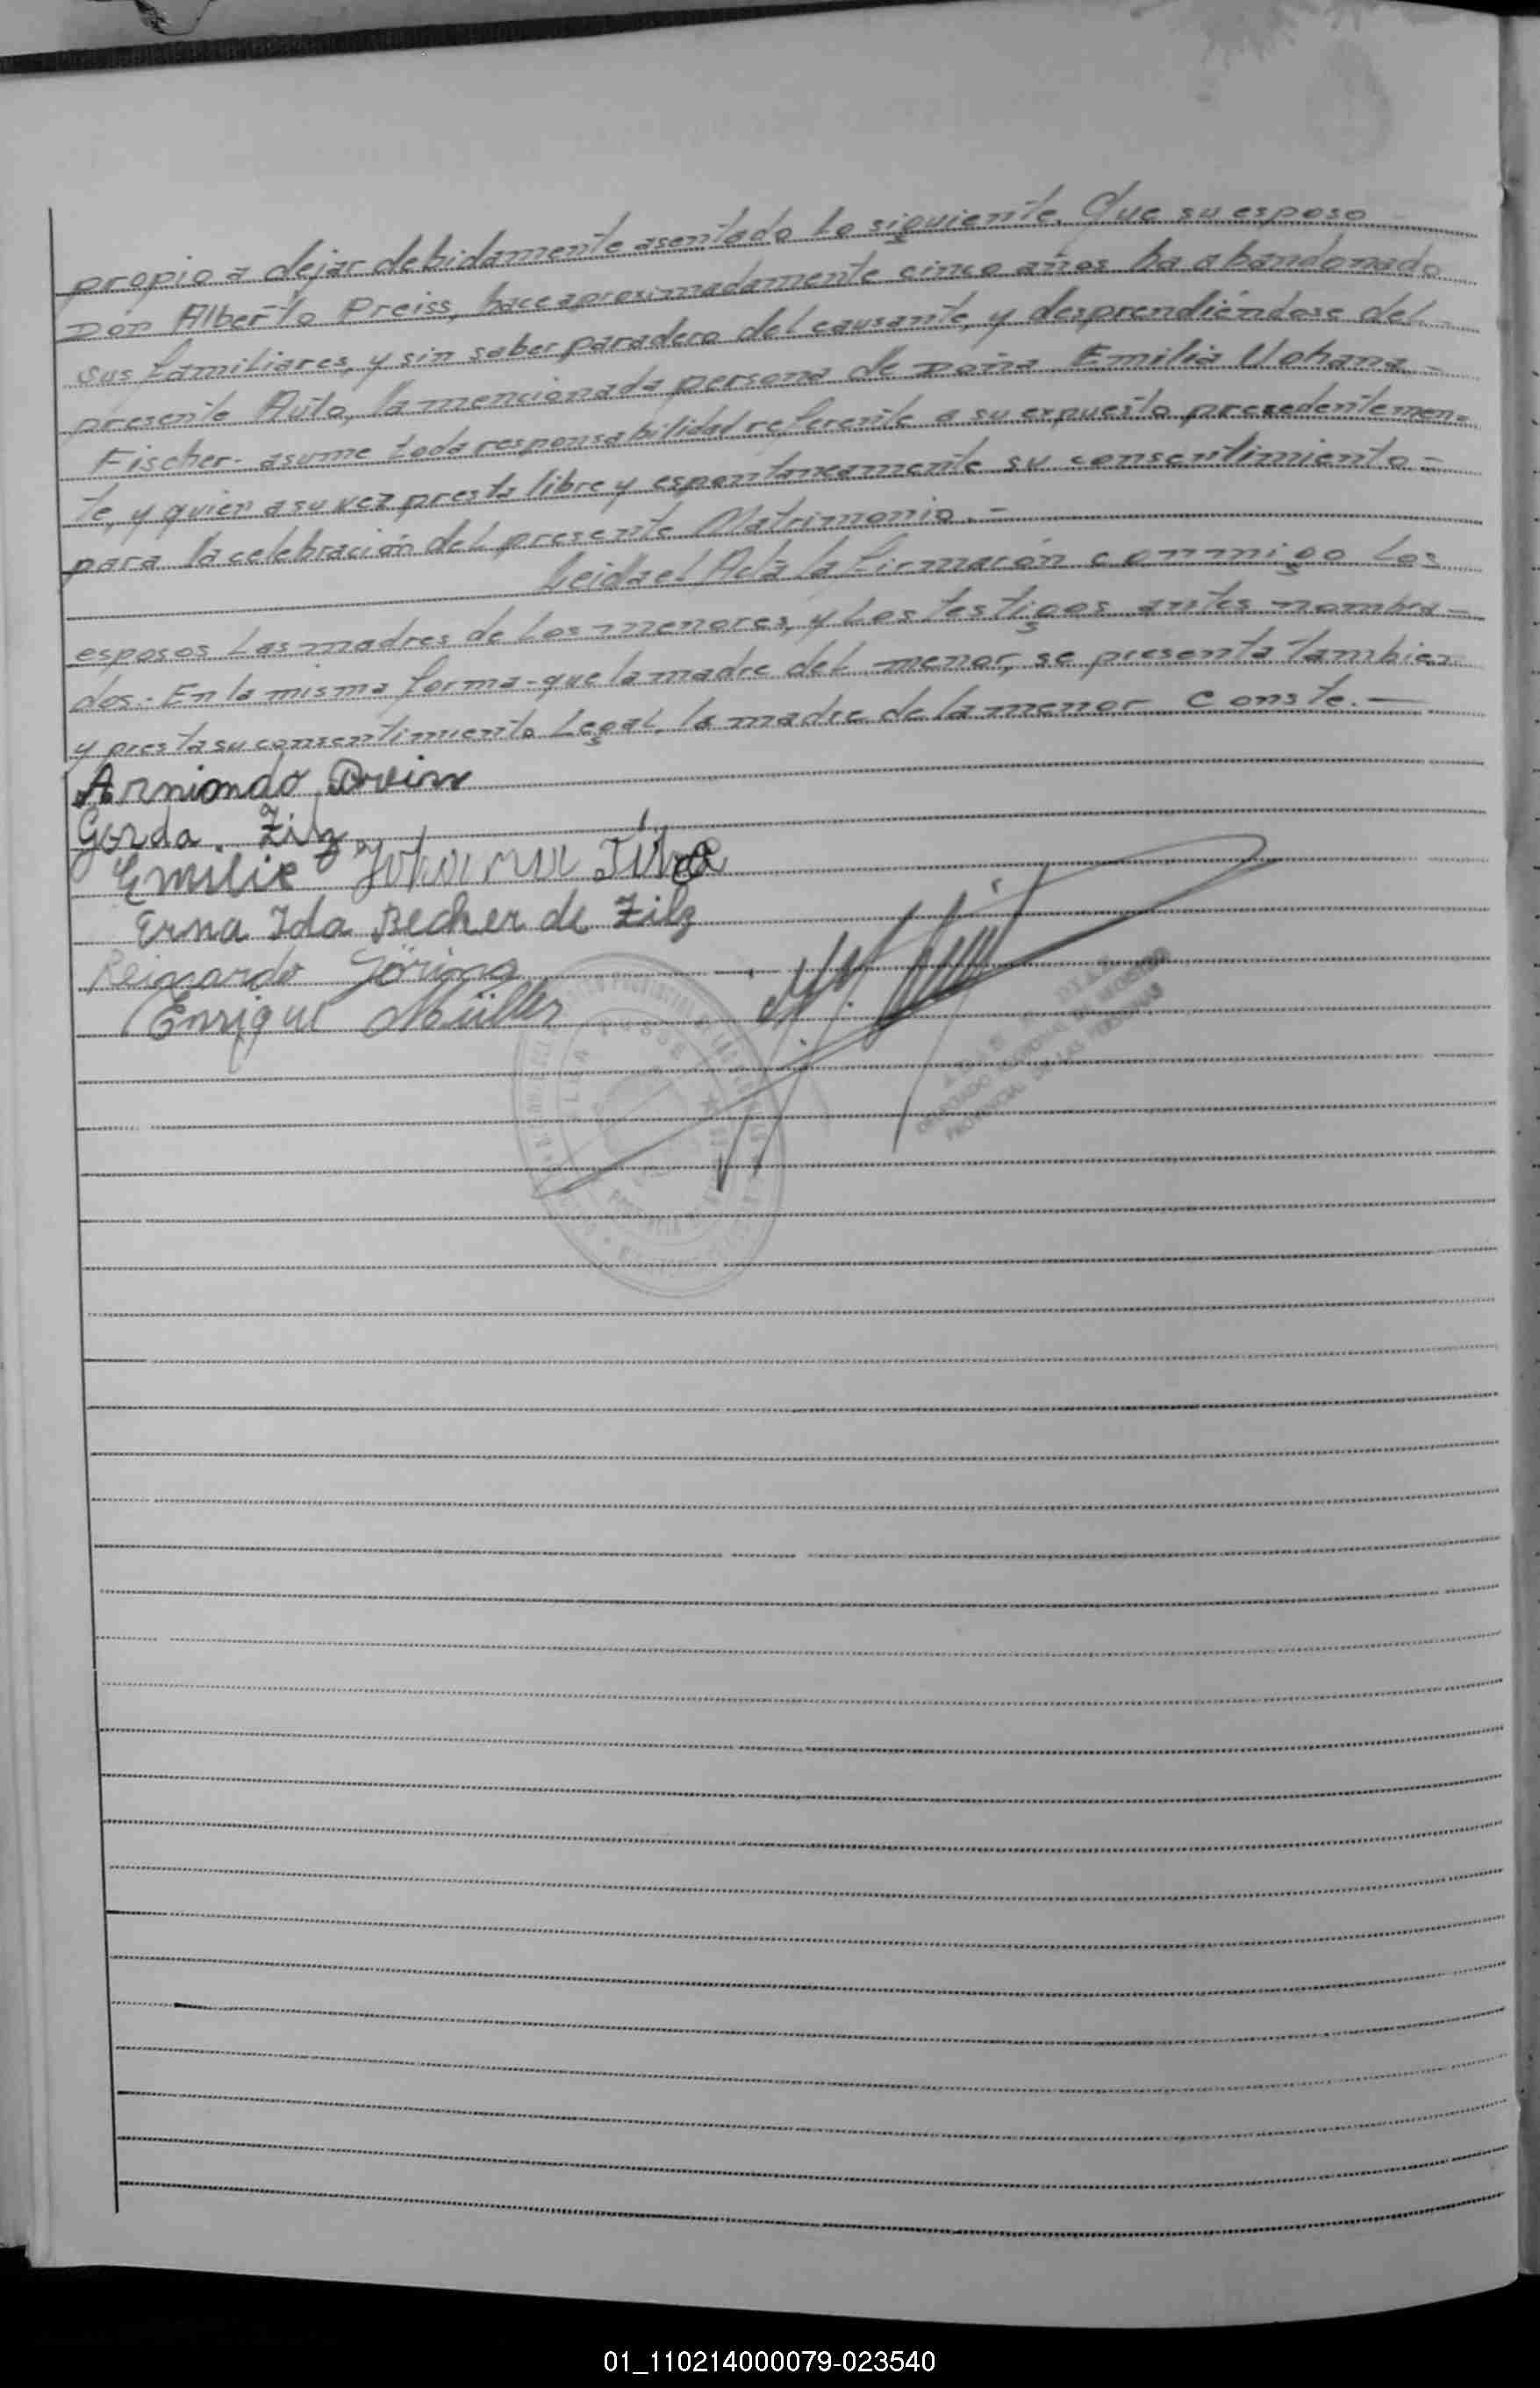 propio a dejar debidamente asentado lo siguiente. Que su esposo
Don Alberto Preiss, hace aproximadamente cinco años ha abandonado
sus familiares, y sin saber paradero del causante, y desprendiéndose del
presente Auto, la mencionada persona de Doña Emilia Uohana
Fischer- asume toda responsabilidad referente a su expuesto precedentemen=
te, y quien a su vez presta libre y espontaneamente su consentimiento =
para la celebración del presente Matrimonio.-
Leida el Acta la firmarón conmigo los
esposos las madres de los menores, y los testigos antes nombra-
dos.- En la misma forma- que la madre del menor, se presenta tambien
y presta su consentimiento Legal, la madre de la menor Conste.-
Armondo
Gerda. Zilz
Emilie
Erna Ida Becher de Zilz
Reinardo
Enrique Müller
PROVINCIAL DE LAS PERSONAS
01_110214000079-023540